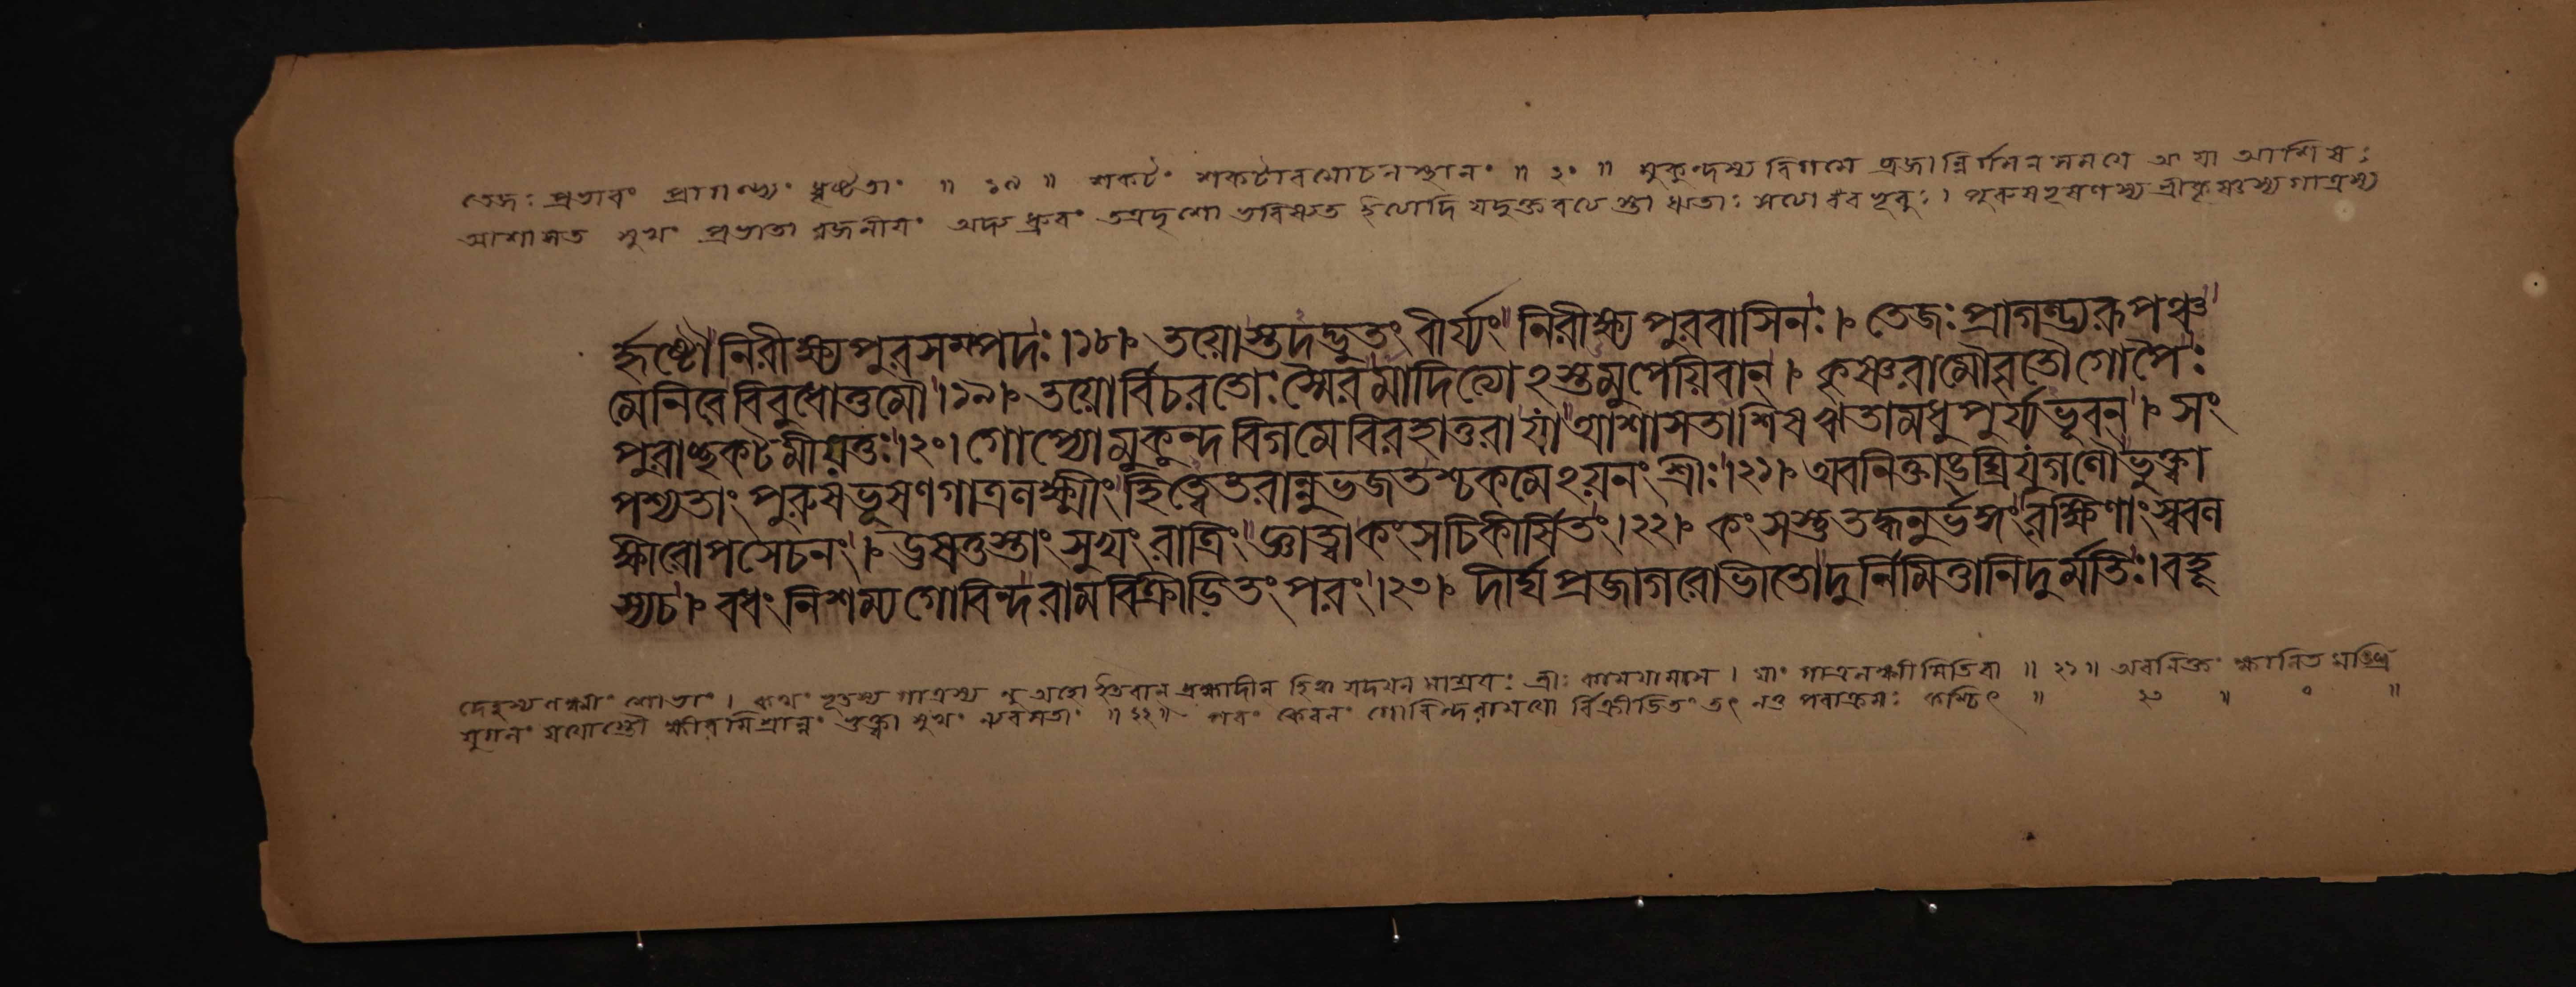 তেজঃ প্রভাবং প্রাগল্ভ্যং ধৃষ্টতাং ॥ ১৯ ॥ শকটং শকটাবমোচনস্থানং ॥ ২০ ॥ মুকুন্দস্য বিগমে ব্রজান্নির্গমন সময়ে আশিষঃ
আশাসত সুখং প্রভাতা রজনীয়ং ধ্রুবং
র্হৃষ্টৌ নিরীক্ষ্য পুরসম্পদঃ।১৮। তয়োস্তদদ্ভুতং বীর্য্যং নিরীক্ষ্য পুরবাসিনঃ। তেজঃ প্রাগল্ভ্যরূপঞ্চ
মেনিরে বিবুধোত্তমৌ।১৯। তয়োর্বিচরতোঃ স্বৈরমাদিত্যোঽস্তমুপেয়িবান্। কৃষ্ণরামৌ বৃতৌ গোপৈঃ
পুরাচ্ছকটমীয়তুঃ।২০। গোপ্যো মুকুন্দবিগমে বিরহাতুরা যা আশাসতাশিষ ঋতা মধুপুর্য্যভূবন্। সং
পশ্যতাং পুরুষভূষণগাত্রলক্ষ্মীং হিত্বেতরান্নু ভজতশ্চকমেঽয়নং শ্রীঃ।২১। অবনিক্তাঙ্ঘ্রিযুগলৌ ভুক্ত্বা
ক্ষীরোপসেচনং। ঊষতুস্তাং সুখং রাত্রিং জ্ঞাত্বা কংসচিকীর্ষিতং।২২। কংসস্তু তদ্ধনুর্ভঙ্গং রক্ষিণাং স্ববল
স্য চ। বধং নিশম্য গোবিন্দরামবিক্রীড়িতং পরং।২৩। দীর্ঘপ্রজাগরো ভীতো দুর্নিমিত্তানি দুর্মতিঃ। বহূ
দেহস্য লক্ষ্মীং শোভাং। হিত্বা শ্রীঃ গাত্রলক্ষ্মীমিতি বা ॥ ২১ ॥ অবনিক্তং ক্ষালিত মঙ্ঘ্রি
যুগলং যয়োস্তৌ ক্ষীরমিশ্রান্নং ভুক্ত্বা সুখং ॥ ২২ ॥ পরং কেবলং গোবিন্দরাময়ো র্বিক্রীড়িতং তৎ নতু পরাক্রমঃ কশ্চিৎ ॥ ২৩ ॥